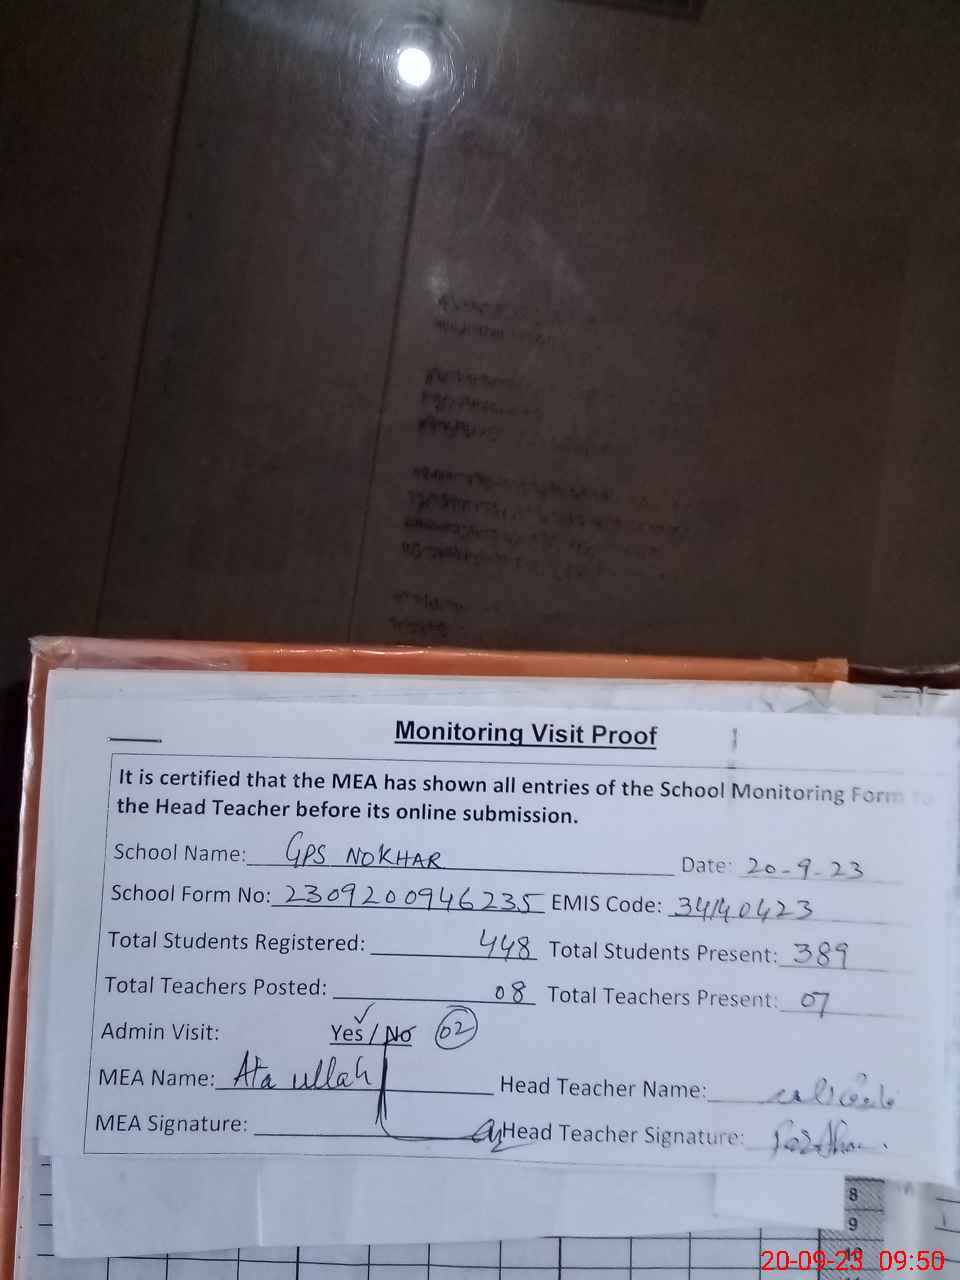 Monitoring Visit Proof
It is certified that the MEA has shown all entries of the School Monitoring Form to
the Head Teacher before its online submission.
School Name: GPS NOKHAR Date: 20-9-23
School Form No: 2309200946235 EMIS Code: 34140423
Total Students Registered: 448 Total Students Present: 389
Total Teachers Posted: 08 Total Teachers Present: 07
Admin Visit: Yes / No 02
MEA Name: Ata ullah Head Teacher Name:
MEA Signature: Head Teacher Signature:
8
9
10
20-09-23 09:50